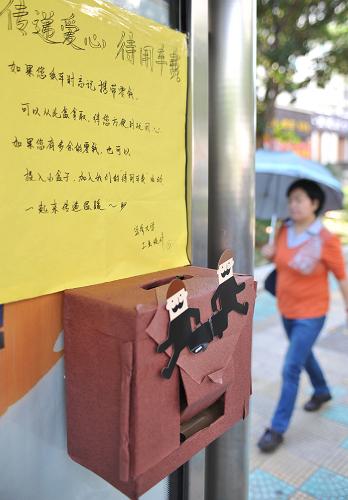 传递爱心 待用车费
如果您乘车时忘记携带零钱,
可以从此盒拿取,
如果您有多余的零钱,也可以
投入小盒子,加入我们的待用车费
一起来传递温暖~